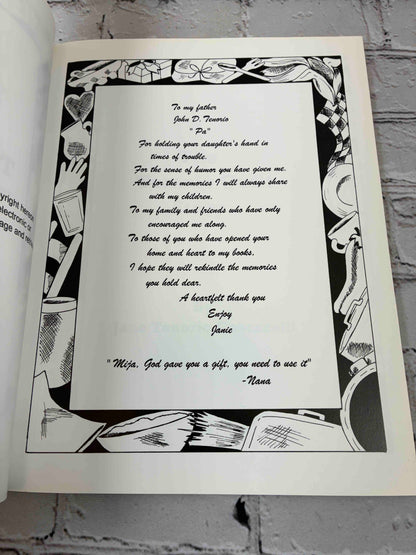 To my father
John D. Tenorio
" Pa"
For holding your daughter's hand in
times of trouble.
For the sense of humor you have given me.
And for the memories I will always share
with my children.
To my family and friends who have only
encouraged me along.
To those of you who have opened your
home and heart to my books.
I hope they will rekindle the memories
you hold dear.
A heartfelt thank you
Enjoy
Janie
" Mija, God gave you a gift, you need to use it"
-Nana
electronic or